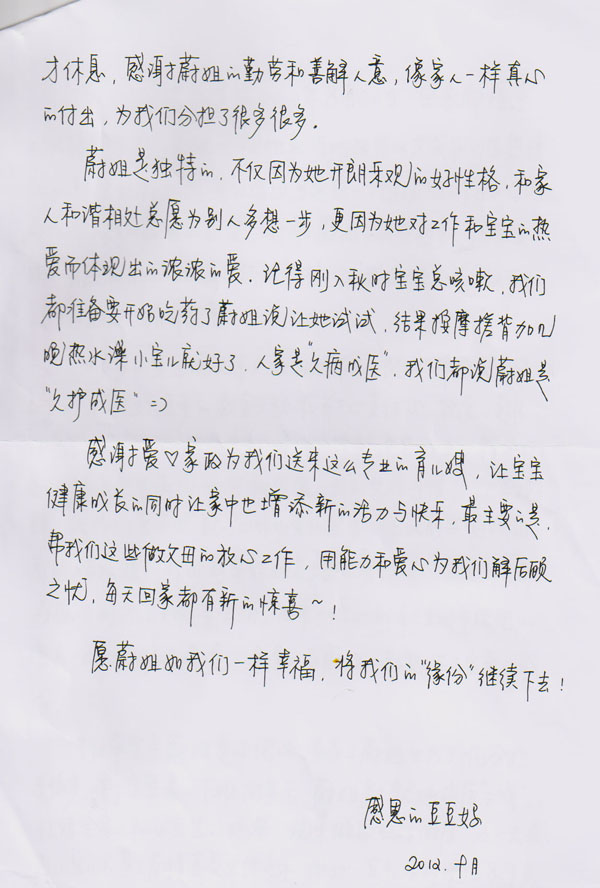 才休息，感谢蔚姐的勤劳和善解人意，像家人一样真心
的付出，为我们分担了很多很多。
蔚姐是独特的，不仅因为她开朗乐观的好性格，和家
人和谐相处总愿为别人多想一步，更因为她对工作和宝宝的热
爱而体现出的浓浓的爱。记得刚入秋时宝宝总咳嗽，我们
都准备要开始吃药了蔚姐说让她试试，结果按摩搓背加几
晚热水澡小宝儿就好了，人家是“久病成医”，我们都说蔚姐是
“久护成医” =)
感谢爱♡家政为我们送来这么专业的育儿嫂，让宝宝
健康成长的同时让家中也增添新的活力与快乐，最主要的是，
帮我们这些做父母的放心工作，用能力和爱心为我们解后顾
之忧，每天回家都有新的惊喜~！
愿蔚姐如我们一样幸福，将我们的“缘份”继续下去！
感恩的豆豆妈
2012.十月